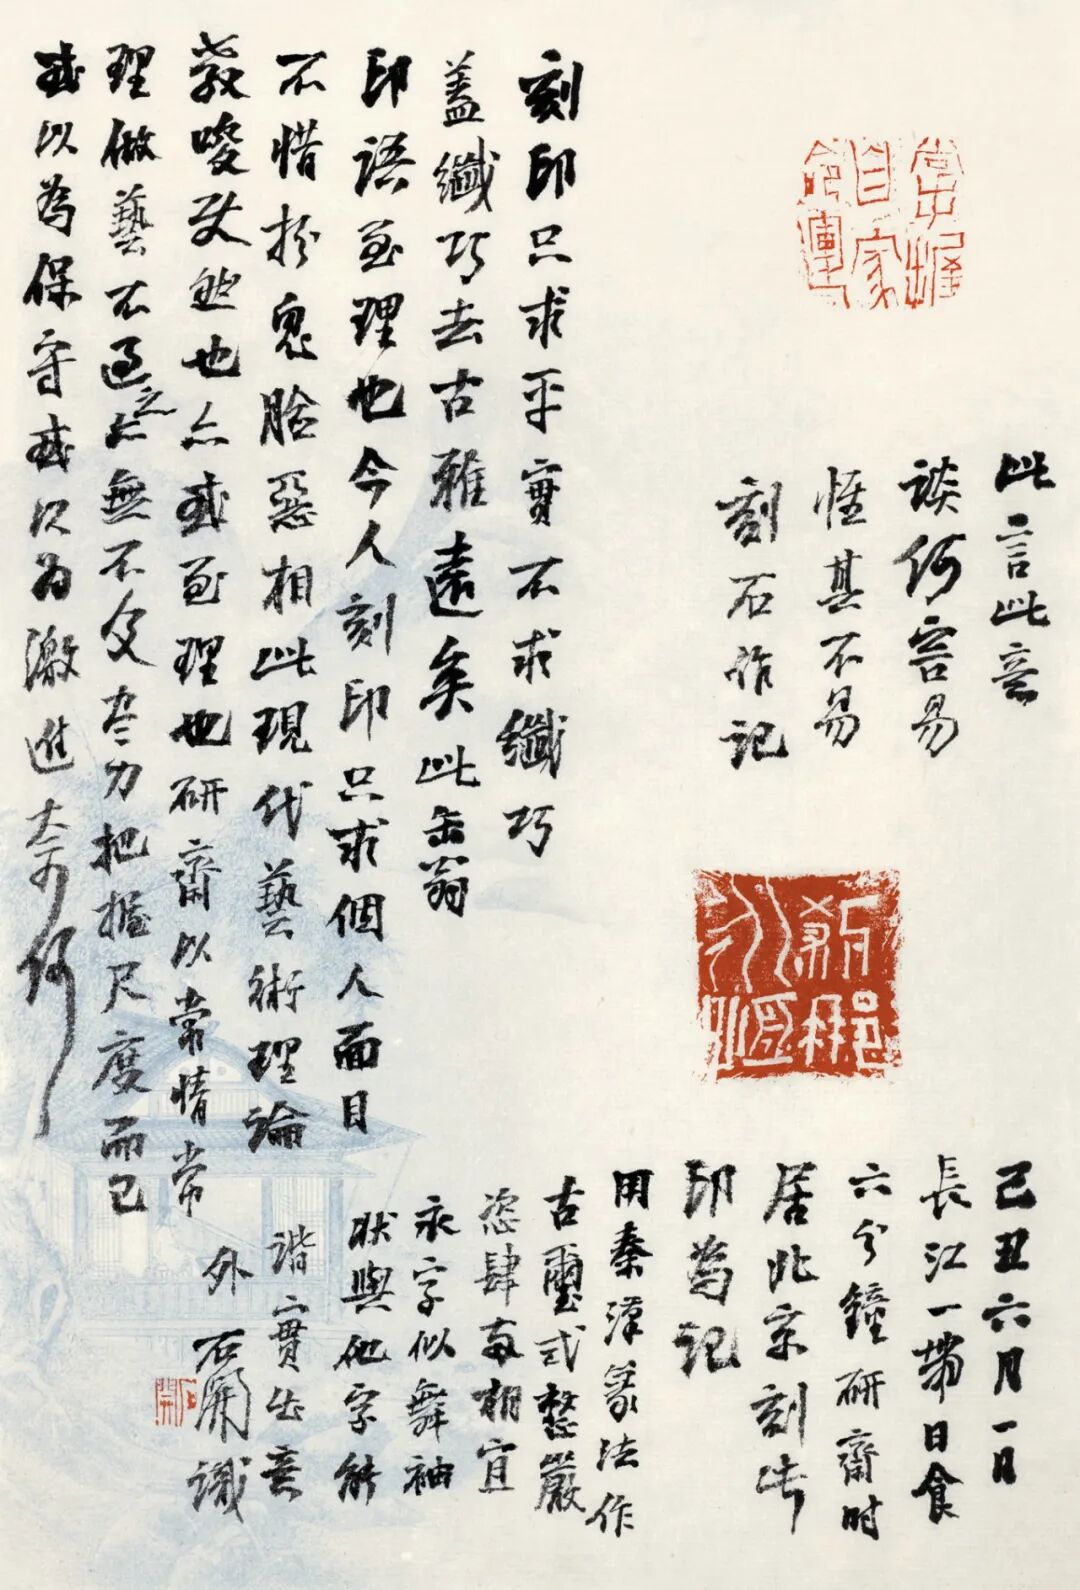 掌握
自家
命運
此言此意
談何容易
惟其不易
刻石作記
刻印只求平實不求纖巧
蓋纖巧去古雅遠矣此缶翁
印語至理也今人刻印只求個人面目
不惜扮鬼臉惡相此現代藝術理論
教唆使然也亦或至理也研齋以常情常
理做藝不過之亦無不及尽力把握尺度而已
或以為保守或以為激進奈何
永恆
己丑六月一日
長江一帶日食
六分鐘研齋时
居北京刻此
印為記
用秦漢篆法作
古璽式整嚴
恣肆兩相宜
永字似舞袖
狀與他字能
諧實出意
外 石開識
石開